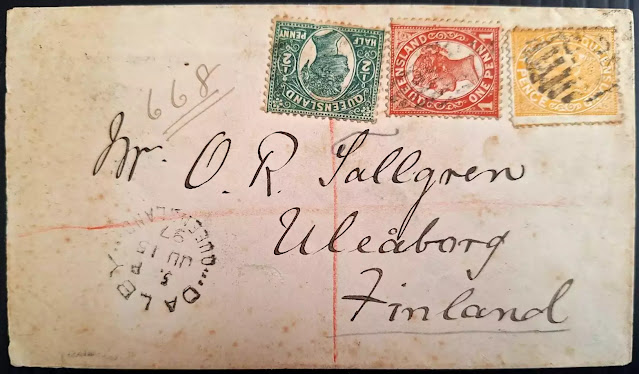 668
½ QUEENSLAND ½
HALF PENNY
QUEENSLAND
1 ONE PENNY 1
PENCE
Mr. O. R. Tallgren
Uleåborg
Finland
DALBY
5 P
JU 15
97
QUEENSLAND